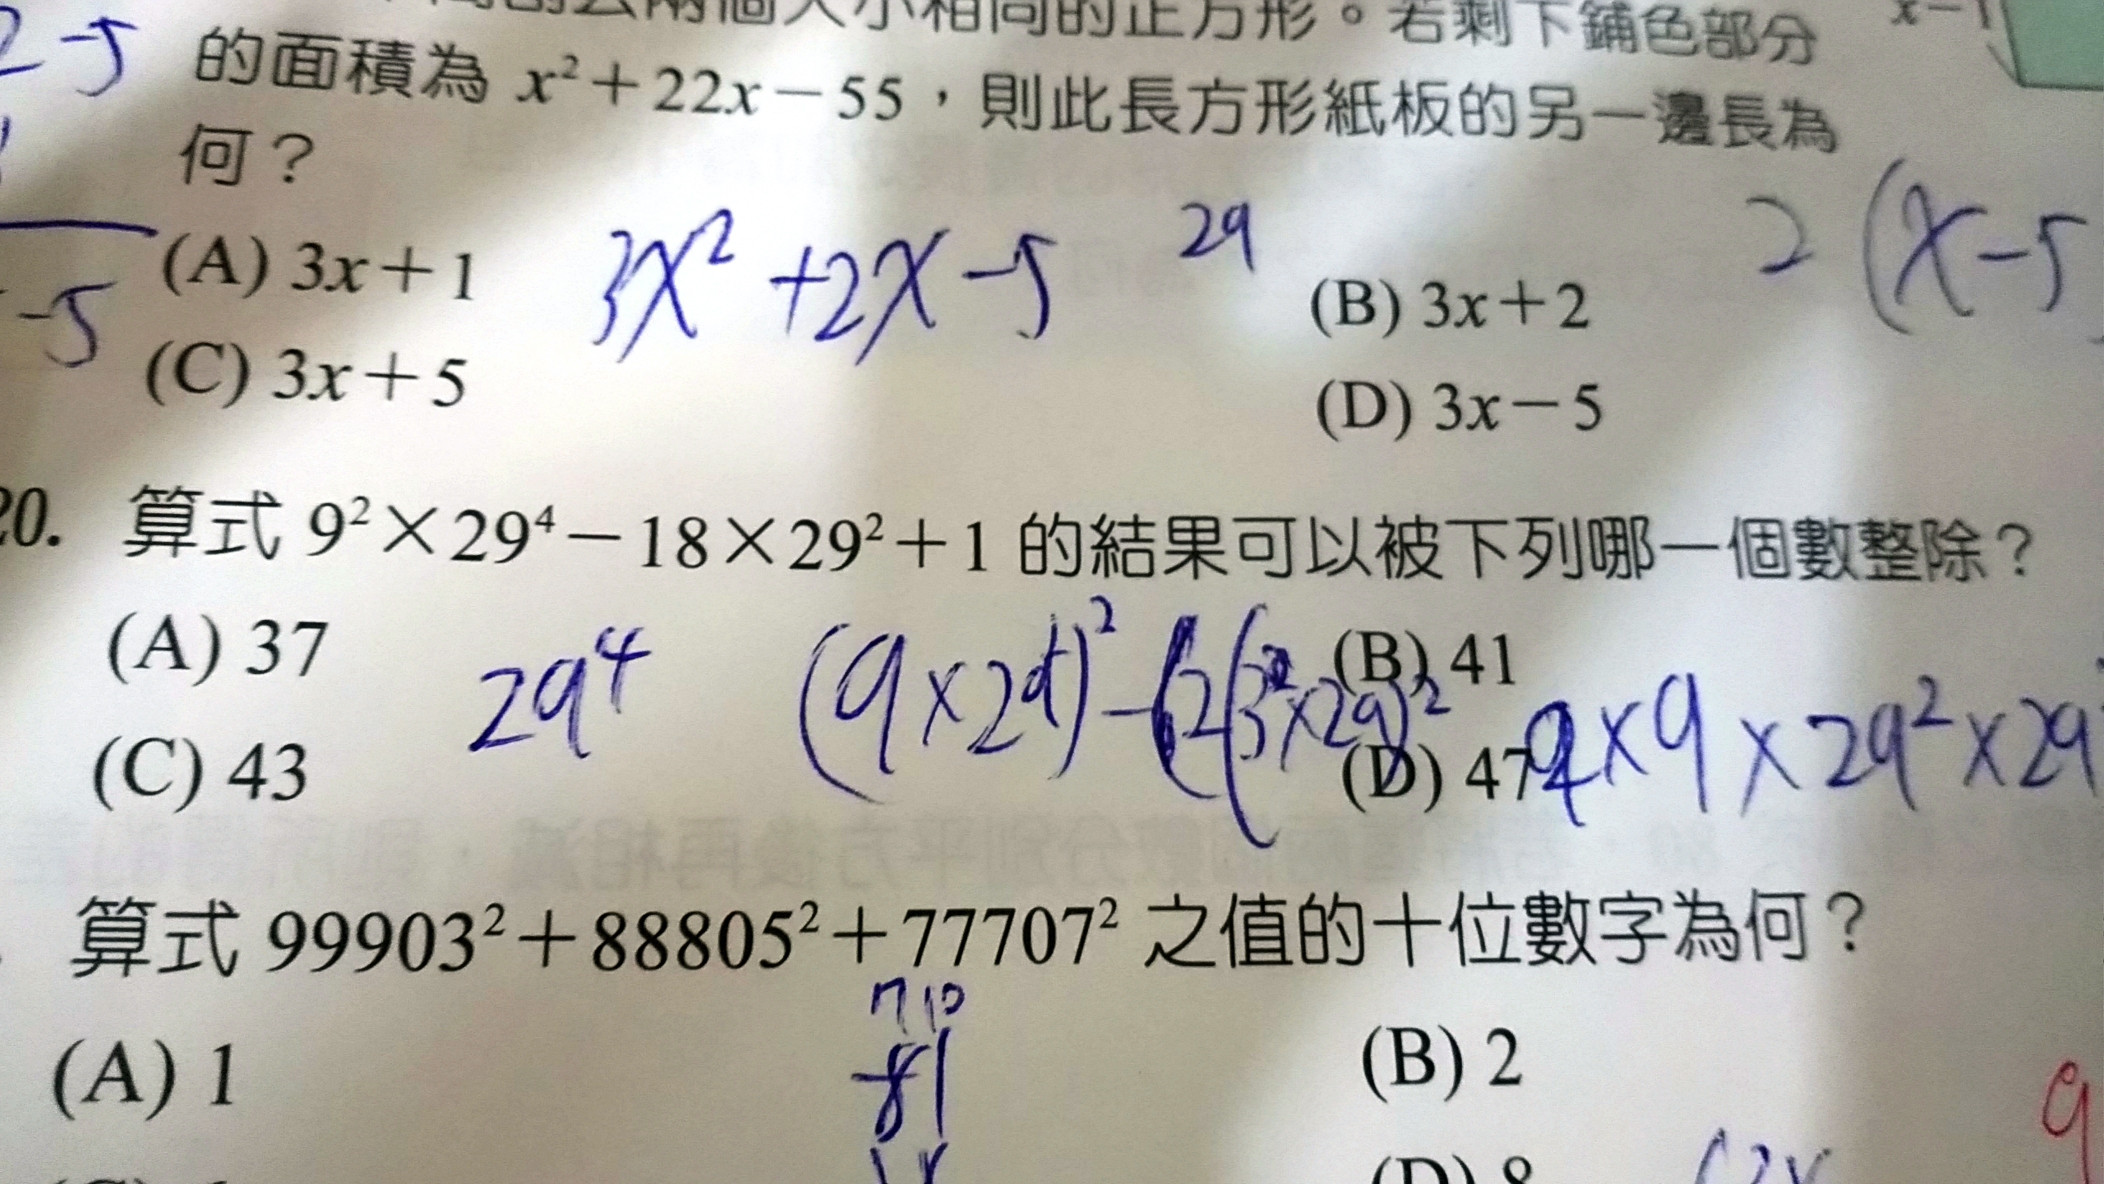 個大小相同的正方形。若剩下鋪色部分
x-1
2-5
的面積為 x²+22x-55，則此長方形紙板的另一邊長為
何？
(A) 3x+1
3x²+2x-5
29
(B) 3x+2
2(x-5
-5
(C) 3x+5
(D) 3x-5
20. 算式 9²×29⁴-18×29²+1 的結果可以被下列哪一個數整除？
(A) 37
29⁴
(9×29)²-
(B) 41
(C) 43
(D) 47
×9×29²×29
算式 99903²+88805²+77707² 之值的十位數字為何？
(A) 1
81
(B) 2
9
(D) 8